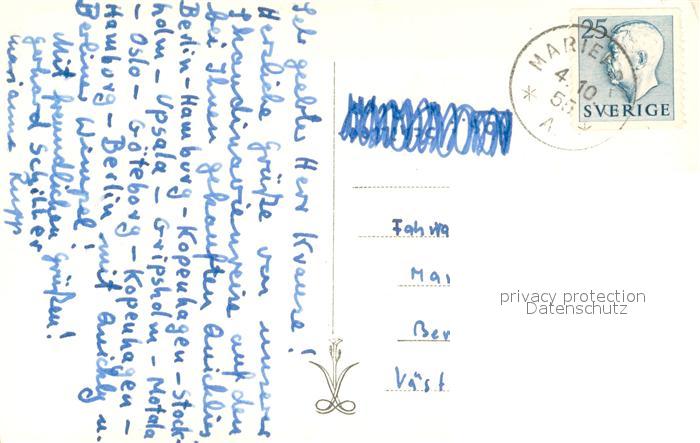 Sehr geehrter Herr Krause!
Herzliche Grüße von unserer
Skandinavienreise auf den
bei Ihnen gekauften Quickly
Berlin-Hamburg-Kopenhagen-Stock-
holm-Upsala-Gripsholm-Motala
-Oslo-Göteborg-Kopenhagen-
Hamburg-Berlin mit Quickly u.
Berliner Wimpel!
Mit freundlichen Grüßen!
Gerhard Schiller
Marianne Rupp
MARIEF
4.10
55
A
25
SVERIGE
Fahrra
Mar
Ber
Väst
privacy protection
Datenschutz